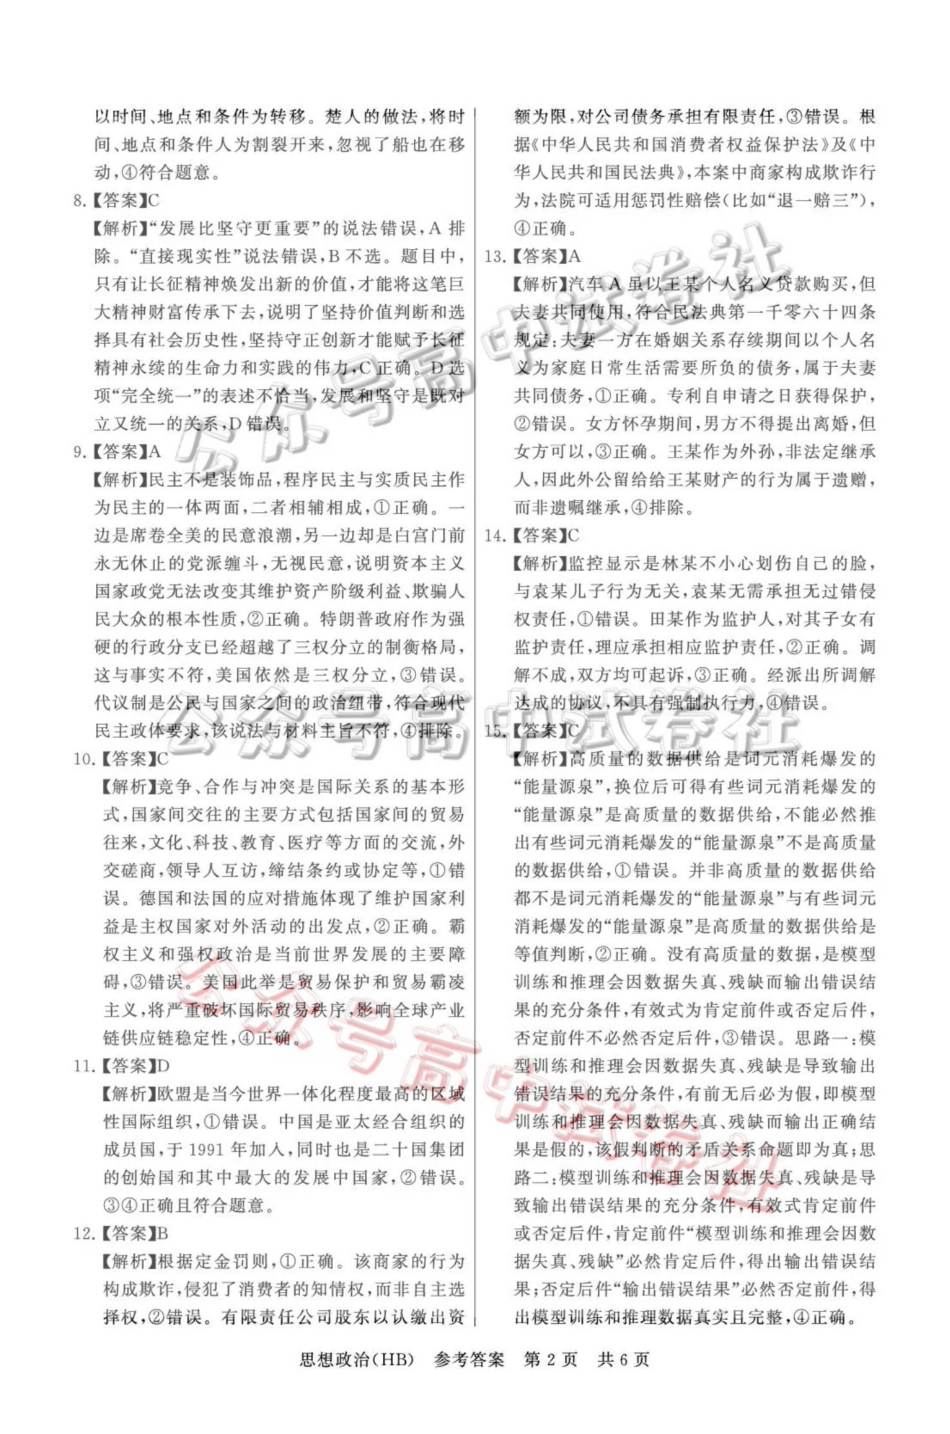 以时间、地点和条件为转移。楚人的做法,将时
间、地点和条件人为割裂开来,忽视了船也在移
动,④符合题意。
8.【答案】C
【解析】“发展比坚守更重要”的说法错误,A 排
除。“直接现实性”说法错误,B 不选。题目中,
只有让长征精神焕发出新的价值,才能将这笔巨
大精神财富传承下去,说明了坚持价值判断和选
择具有社会历史性,坚持守正创新才能赋予长征
精神永续的生命力和实践的伟力,C 正确。D 选
项“完全统一”的表述不恰当,发展和坚守是既对
立又统一的关系,D 错误。
9.【答案】A
【解析】民主不是装饰品,程序民主与实质民主作
为民主的一体两面,二者相辅相成,①正确。一
边是席卷全美的民意浪潮,另一边却是白宫门前
永无休止的党派缠斗,无视民意,说明资本主义
国家政党无法改变其维护资产阶级利益、欺骗人
民大众的根本性质,②正确。特朗普政府作为强
硬的行政分支已经超越了三权分立的制衡格局,
这与事实不符,美国依然是三权分立,③错误。
代议制是公民与国家之间的政治纽带,符合现代
民主政体要求,该说法与材料主旨不符,④排除。
10.【答案】C
【解析】竞争、合作与冲突是国际关系的基本形
式,国家间交往的主要方式包括国家间的贸易
往来,文化、科技、教育、医疗等方面的交流,外
交磋商,领导人互访,缔结条约或协定等,①错
误。德国和法国的应对措施体现了维护国家利
益是主权国家对外活动的出发点,②正确。霸
权主义和强权政治是当前世界发展的主要障
碍,③错误。美国此举是贸易保护和贸易霸凌
主义,将严重破坏国际贸易秩序,影响全球产业
链供应链稳定性,④正确。
11.【答案】D
【解析】欧盟是当今世界一体化程度最高的区域
性国际组织,①错误。中国是亚太经合组织的
成员国,于 1991 年加入,同时也是二十国集团
的创始国和其中最大的发展中国家,②错误。
③④正确且符合题意。
12.【答案】B
【解析】根据定金罚则,①正确。该商家的行为
构成欺诈,侵犯了消费者的知情权,而非自主选
择权,②错误。有限责任公司股东以认缴出资
额为限,对公司债务承担有限责任,③错误。根
据《中华人民共和国消费者权益保护法》及《中
华人民共和国民法典》,本案中商家构成欺诈行
为,法院可适用惩罚性赔偿(比如“退一赔三”),
④正确。
13.【答案】A
【解析】汽车 A 虽以王某个人名义贷款购买,但
夫妻共同使用,符合民法典第一千零六十四条
规定:夫妻一方在婚姻关系存续期间以个人名
义为家庭日常生活需要所负的债务,属于夫妻
共同债务,①正确。专利自申请之日获得保护,
②错误。女方怀孕期间,男方不得提出离婚,但
女方可以,③正确。王某作为外孙,非法定继承
人,因此外公留给给王某财产的行为属于遗赠,
而非遗嘱继承,④排除。
14.【答案】C
【解析】监控显示是林某不小心划伤自己的脸,
与袁某儿子行为无关,袁某无需承担无过错侵
权责任,①错误。田某作为监护人,对其子女有
监护责任,理应承担相应监护责任,②正确。调
解不成,双方均可起诉,③正确。经派出所调解
达成的协议,不具有强制执行力,④错误。
15.【答案】C
【解析】高质量的数据供给是词元消耗爆发的
“能量源泉”,换位后可得有些词元消耗爆发的
“能量源泉”是高质量的数据供给,不能必然推
出有些词元消耗爆发的“能量源泉”不是高质量
的数据供给,①错误。并非高质量的数据供给
都不是词元消耗爆发的“能量源泉”与有些词元
消耗爆发的“能量源泉”是高质量的数据供给是
等值判断,②正确。没有高质量的数据,是模型
训练和推理会因数据失真、残缺而输出错误结
果的充分条件,有效式为肯定前件或否定后件,
否定前件不必然否定后件,③错误。思路一:模
型训练和推理会因数据失真、残缺是导致输出
错误结果的充分条件,有前无后必为假,即模型
训练和推理会因数据失真、残缺而输出正确结
果是假的,该假判断的矛盾关系命题即为真;思
路二:模型训练和推理会因数据失真、残缺是导
致输出错误结果的充分条件,有效式肯定前件
或否定后件,肯定前件“模型训练和推理会因数
据失真、残缺”必然肯定后件,得出输出错误结
果;否定后件“输出错误结果”必然否定前件,得
出模型训练和推理数据真实且完整,④正确。
思想政治(HB) 参考答案 第 2 页 共 6 页
公众号高中试卷社
公众号高中试卷社
公众号高中试卷社